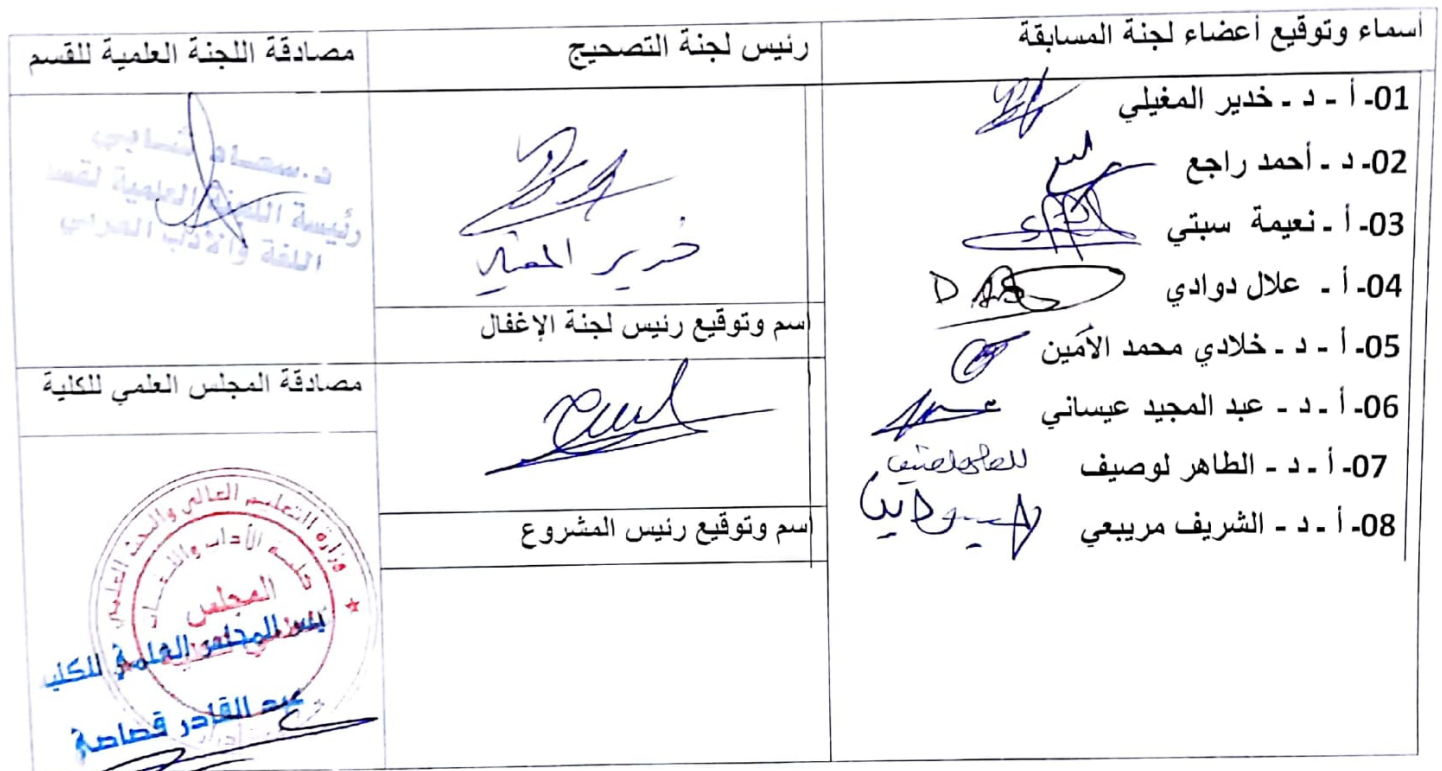 أسماء وتوقيع أعضاء لجنة المسابقة
01- أ - د - خدير المغيلي
02- د - أحمد راجع
03- أ - نعيمة سبتي
04- أ - علال دوادي
05- أ - د - خلادي محمد الأمين
06- أ - د - عبد المجيد عيساني
07- أ - د - الطاهر لوصيف
08- أ - د - الشريف مريبعي
رئيس لجنة التصحيح
خدير المغيلي
اسم وتوقيع رئيس لجنة الإغفال
اسم وتوقيع رئيس المشروع
مصادقة اللجنة العلمية للقسم
د.سعاد شابي
رئيسة اللجنة العلمية لقسم
اللغة والأدب العربي
مصادقة المجلس العلمي للكلية
وزارة التعليم العالي والبحث العلمي
كلية الآداب واللغات
المجلس
المجلس العلمي للكلية
عبد القادر قصاصي